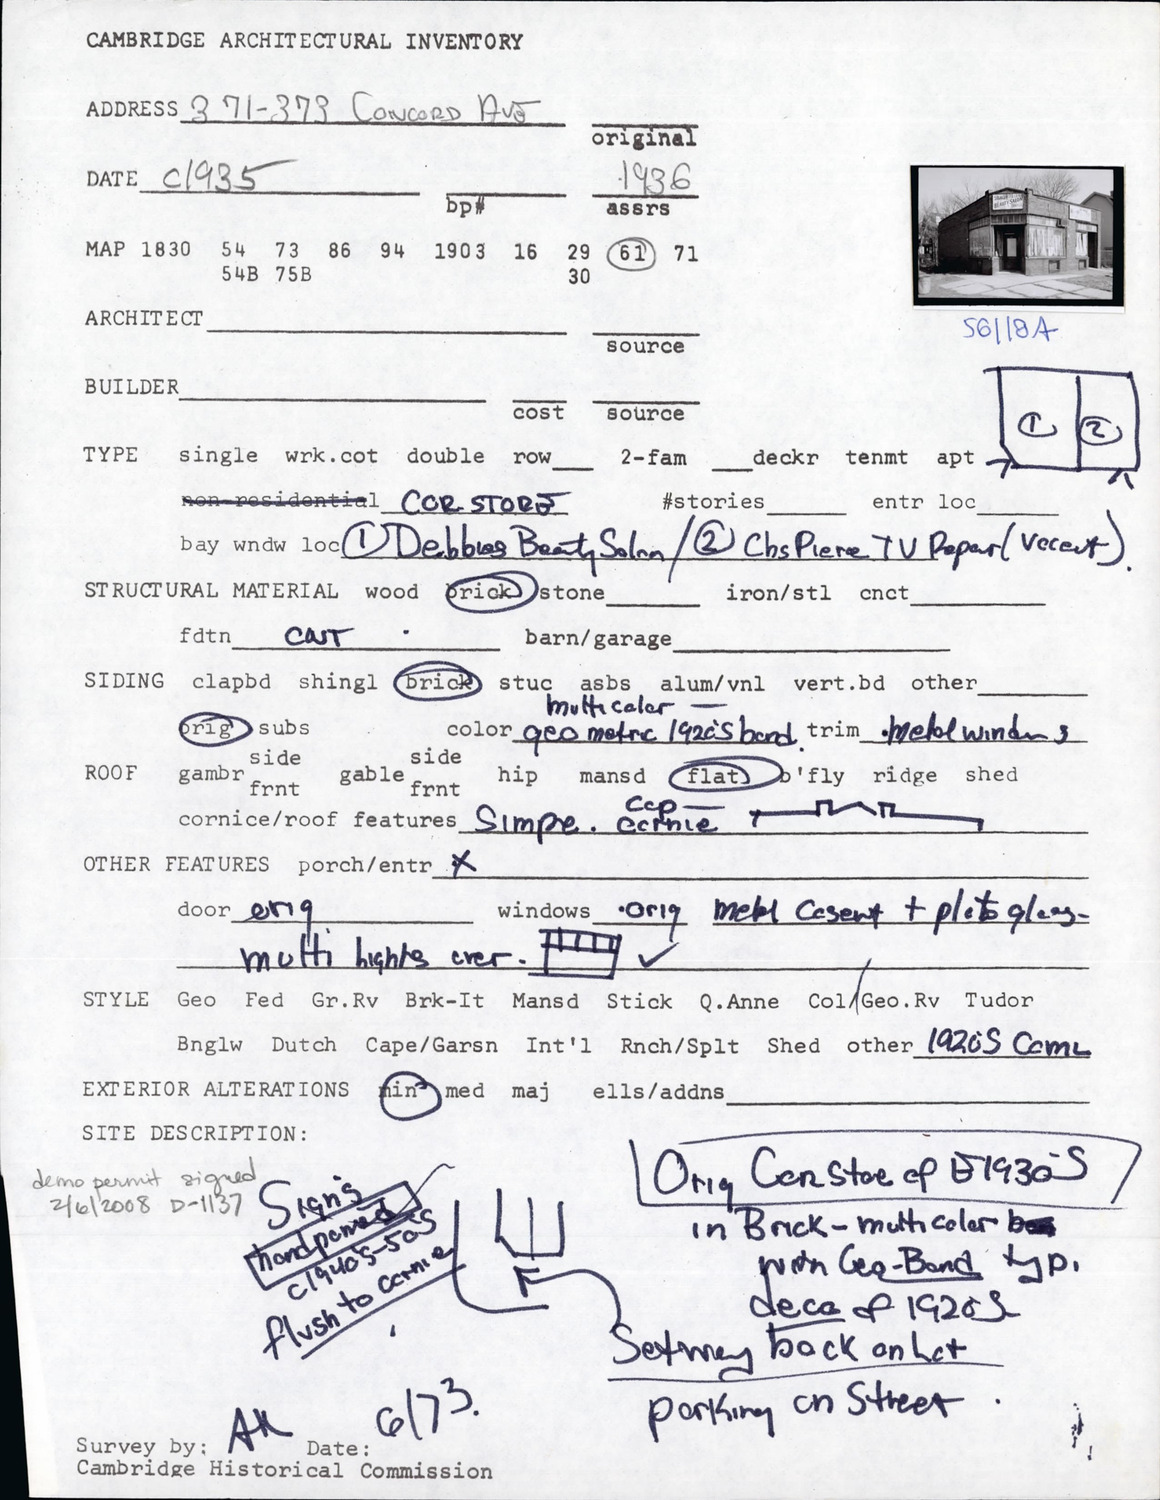 CAMBRIDGE ARCHITECTURAL INVENTORY
ADDRESS 371-373 CONCORD AVE
original
DATE c1935 1936
bp# assrs
MAP 1830 54 73 86 94 1903 16 29 61 71
54B 75B 30
56118A
ARCHITECT
source
BUILDER
cost source
1 2
TYPE single wrk.cot double row 2-fam deckr tenmt apt
non-residential COR. STORE #stories entr loc
bay wndw loc 1 Debbies Beauty Salon / 2 Chs Piere TV Repair (vacant).
STRUCTURAL MATERIAL wood brick stone iron/stl cnct
fdtn CAST barn/garage
SIDING clapbd shingl brick stuc asbs alum/vnl vert.bd other
multicolor —
orig subs color geometric 1920's band. trim metal windows
side side
ROOF gambr gable hip mansd flat b'fly ridge shed
frnt frnt
cap —
cornice/roof features Simple. cornice
OTHER FEATURES porch/entr X
door orig windows orig metal casemt + plate glass-
multi lights over.
STYLE Geo Fed Gr.Rv Brk-It Mansd Stick Q.Anne Col/Geo.Rv Tudor
Bnglw Dutch Cape/Garsn Int'l Rnch/Splt Shed other 1920's Comm
EXTERIOR ALTERATIONS min med maj ells/addns
SITE DESCRIPTION:
demo permit signed
2/6/2008 D-1137
Signs
hand painted
c1940's-50's
flush to cornice
Orig Cor Store of E1930's
in Brick - multicolor
with Geo-Band typ.
deco of 1920's
Set way back on lot
parking on street.
Survey by: AK Date: 6/73.
Cambridge Historical Commission